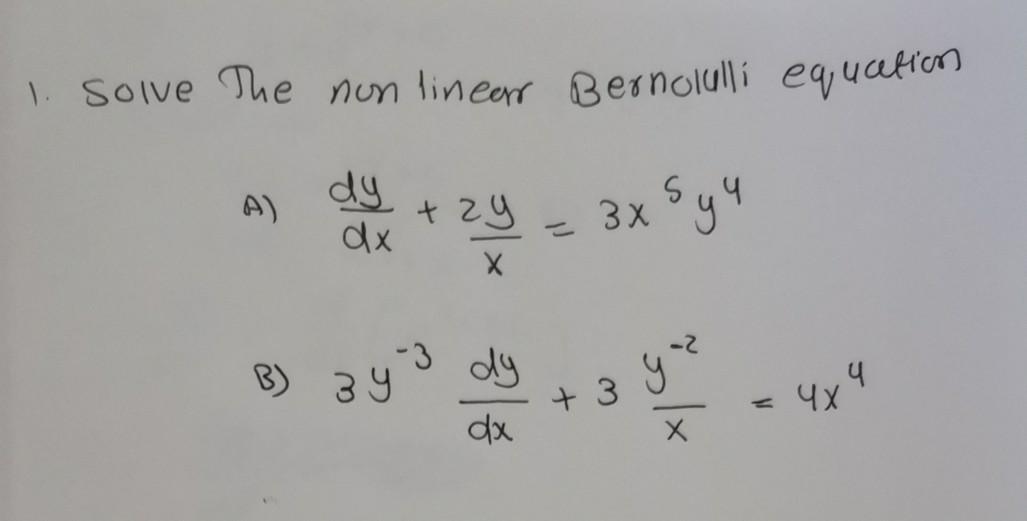 1. Solve The non linear Bernolulli equation
A) dy/dx + 2y/x = 3x^5 y^4
B) 3y^-3 dy/dx + 3 y^-2/x = 4x^4